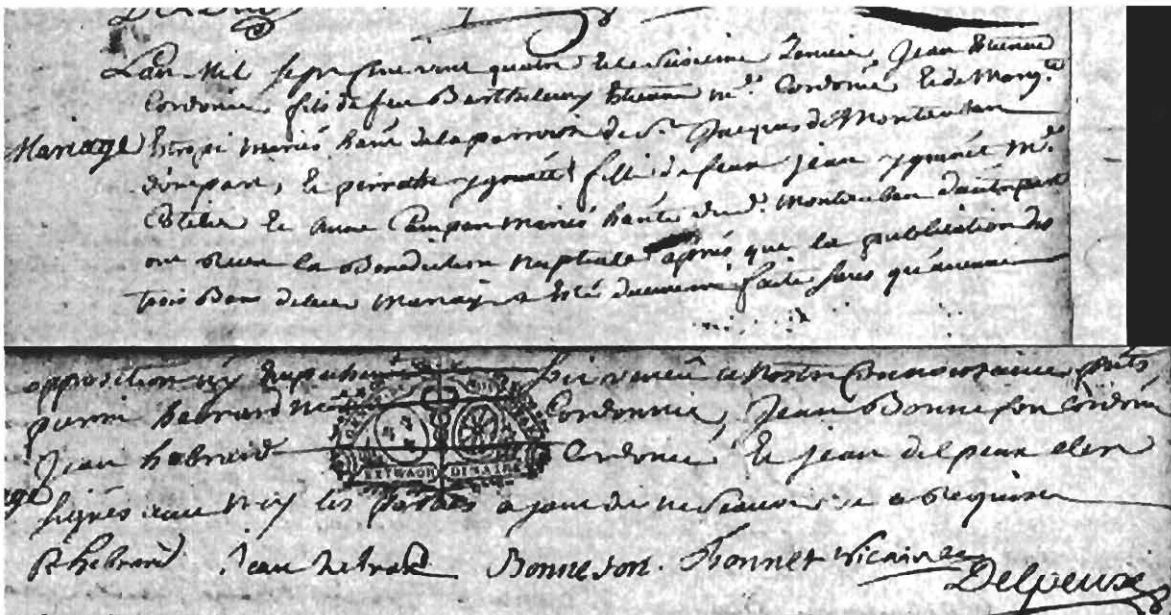 L'an mil sept cent vingt quatre et le sixieme Janvier Jean Etienne
Cordonier fils de feu Barthelemy Etienne m.e Cordonié et de Marg.te
Mariage Estropi mariés hant de la parroisse de S.t Jacques de Montauban
d'une part, et perrette fille de feu Jean m.e
et Anne Campan mariés hante dud. Montauban d'autre part
ont reçeu la Benediction nuptiale après que la publication des
trois Bans de leur mariage a esté duement faite sans qu'aucune
opposition ny empechement soit venu a nostre Connoissance, pnts
hebrard Cordonnié, Jean Bonnefon Cordon
Jean hebrard Cordonié et Jean delpeux clerc
signés avec moy les parties ayant dit ne scavoir de ce requises
P hebrard Jean hebrard Bonnefon. Bonnet vicaire
Delpeux
EXTRAORDINAIRE